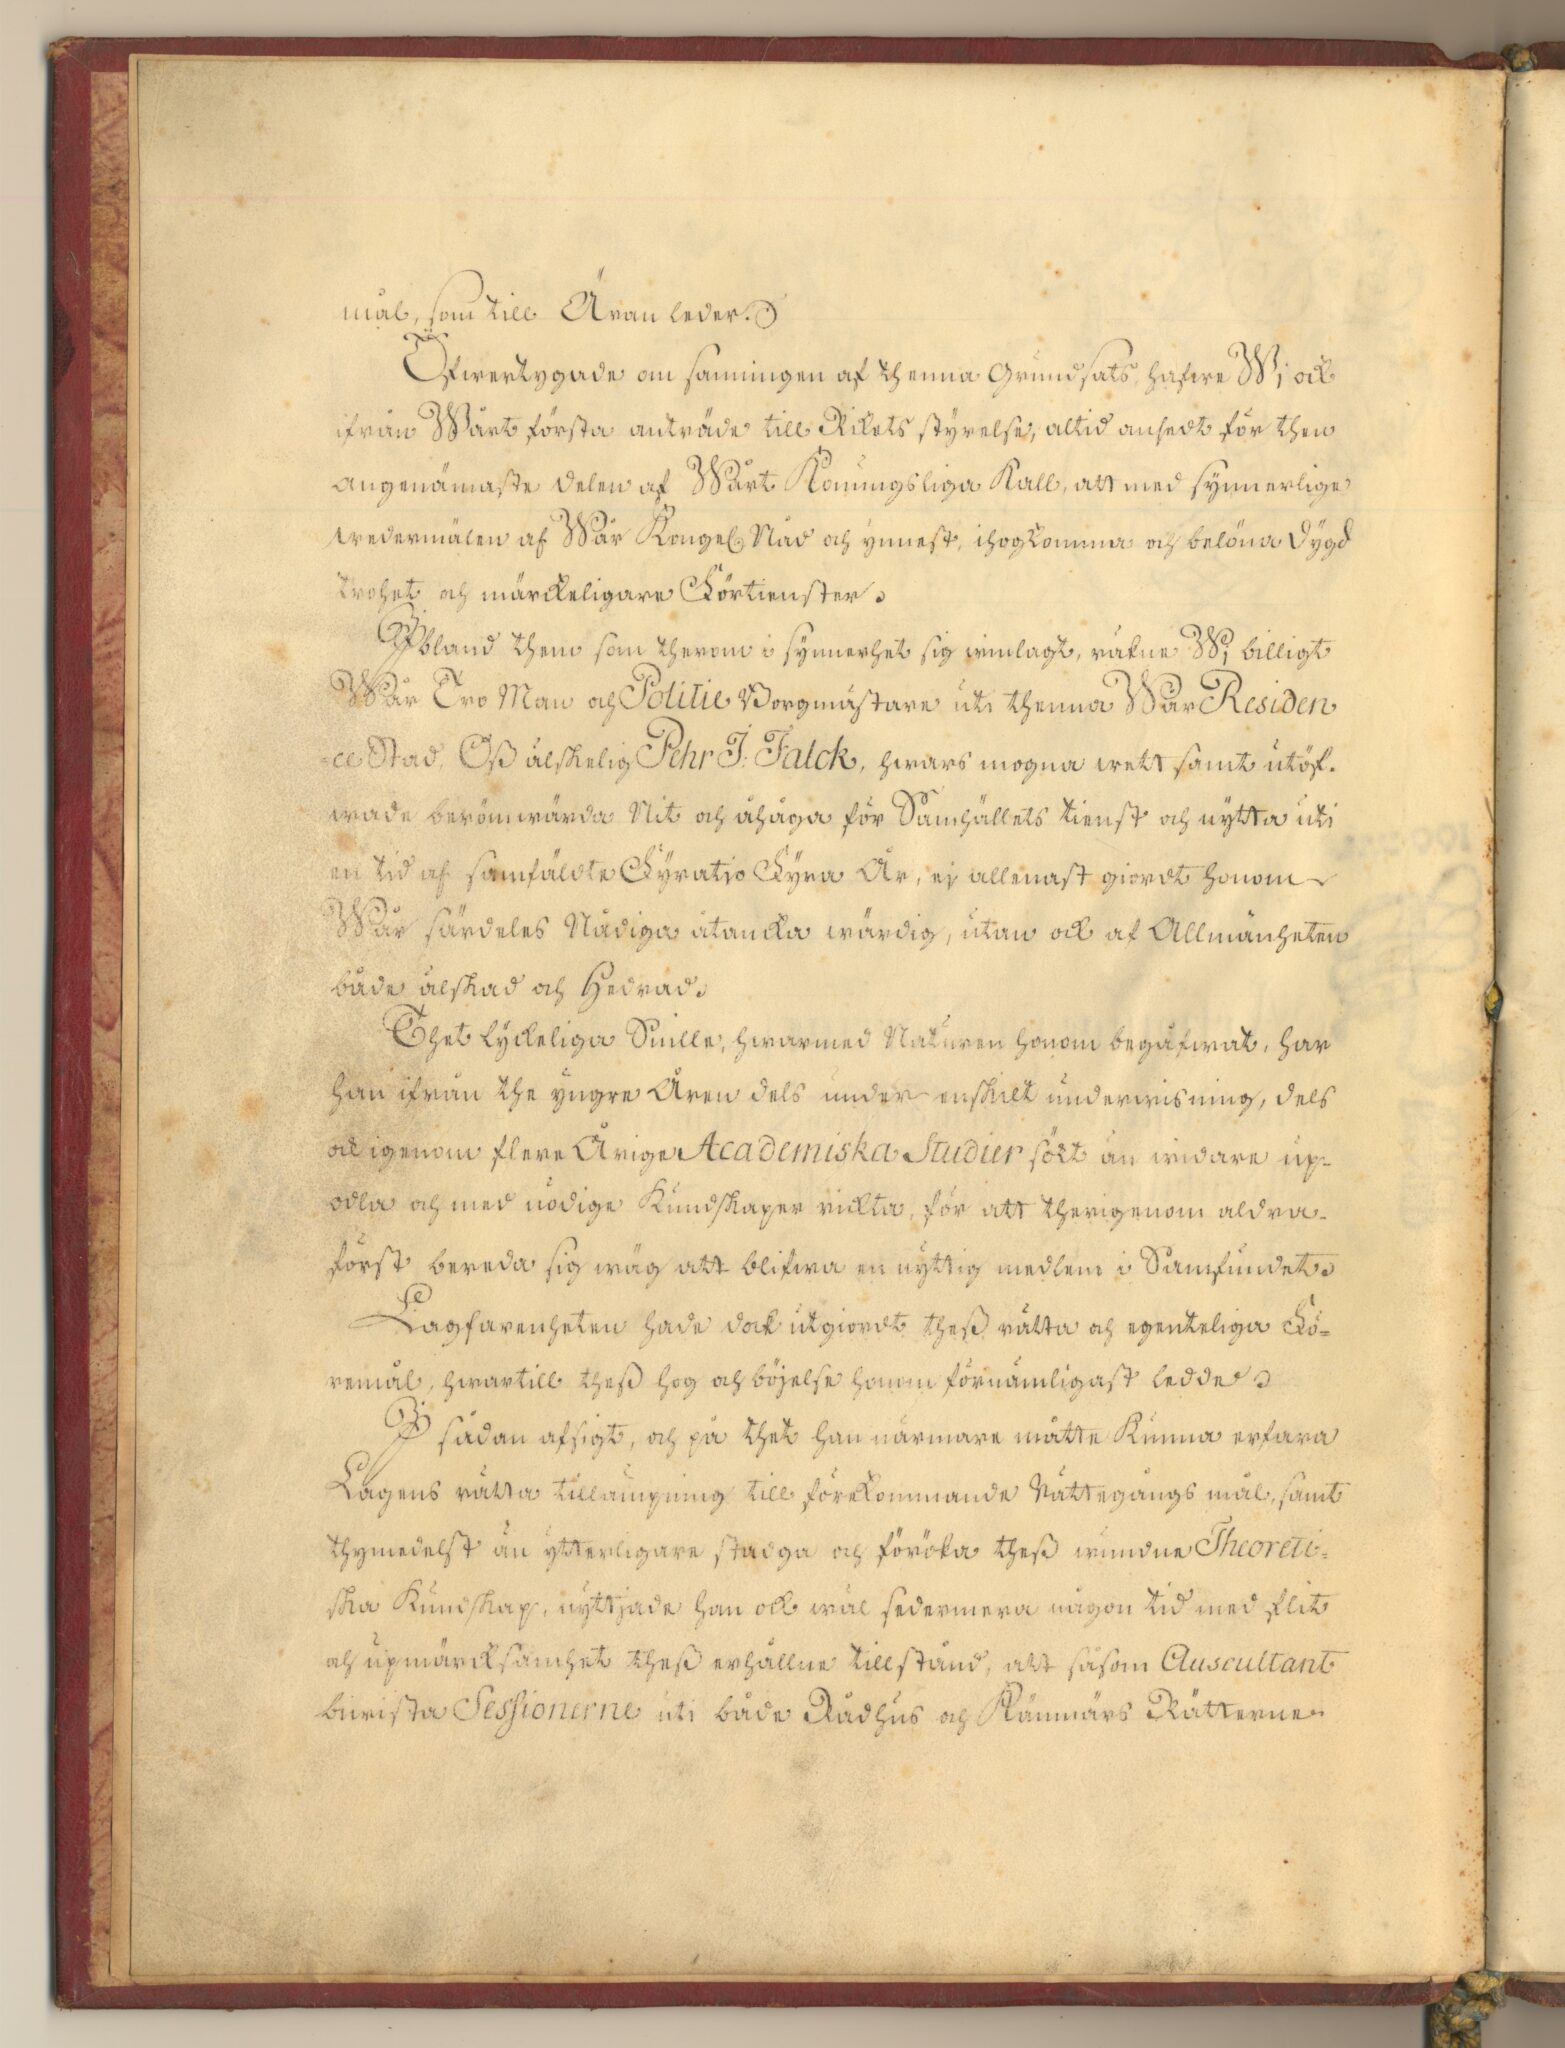 mål, som till Äran leder.
Öfwertygade om sanningen af thenna Grundsats, hafwe Wi ock
ifrån Wårt första anträde till Rikets styrelse, altid ansedt för then
angenämaste delen af Wårt Konungsliga Kall, att med synnerlige
wedermälen af Wår Kongel. Nåd och ynnest, ihogkomma och belöna Dygd
trohet och märckeligare Förtienster.
Ibland them som therom i synnerhet sig winlagt, räkne Wi billigt
Wår Tro Man och Politie Borgmästare uti thenna Wår Residen
=ce Stad, Oß älskelig Pehr J: Falck, hwars mogna wett samt utöf-
wade berömwärda Nit och åhåga för Samhällets tienst och nytta uti
en tid af samfäldte Fyratio Fyra År, ej allenast giordt honom
Wår särdeles Nådiga åtancka wärdig, utan ock af Allmänheten
både älskad och Hedrad.
Thet lyckeliga Snille, hwarmed Naturen honom begåfwat, har
han ifrån the yngre Åren dels under enskilt underwisning, dels
ock igenom flere Årige Academiska Studier sökt än widare up-
odla och med nödige Kundskaper rickta, för att therigenom aldra-
först bereda sig wäg att blifwa en nyttig medlem i Samfundet.
Lagfarenheten hade dock utgiordt theß rätta och egenteliga Fö=
remål, hwartill theß hog och böjelse honom förnämligast ledde.
I sådan afsigt, och på thet han närmare måtte Kunna erfara
Lagens rätta tillämpning till förekommande Rättegångs mål, samt
thymedelst än ytterligare stadga och föröka theß wundne Theoreti=
ska Kundskap, nyttjade han ock wäl sedermera någon tid med flit
och upmärcksamhet theß erhållne tillstånd, att såsom Auscultant
biwista Sessionerne uti både Rådhus och Kämnärs Rätterne